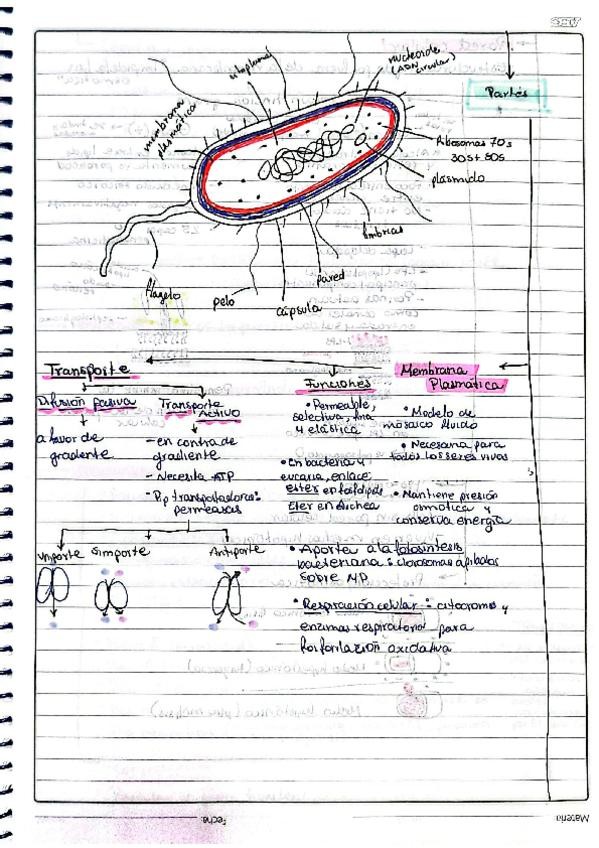 Partes
nucleoide
(ADN
circular)
citoplasma
membrana
plasmática
Ribosomas 70s
30s + 50s
plásmido
fimbrias
pared
cápsula
pelo
flagelo
Transporte
Funciones
Membrana
Plasmática
Difusión pasiva
a favor de
gradiente
Transporte
Activo
- en contra de
gradiente
- Necesita ATP
permeasas
Uniporte
Simporte
Antiporte
• Permeable,
selectiva, fina
y elástica
• En bacteria y
eucaria, enlace
ester en fosfolípidos
Eter en Archea
• Aporta a la fotosíntesis
bacteriana: clorosomas
sobre MP.
• Respiración celular: citocromos y
enzimas respiratorias para
fosforilación oxidativa
• Modelo de
mosaico fluido
• Necesaria para
todos los seres vivos
• Mantiene presión
osmótica y
conserva energía
Fecha
Materia